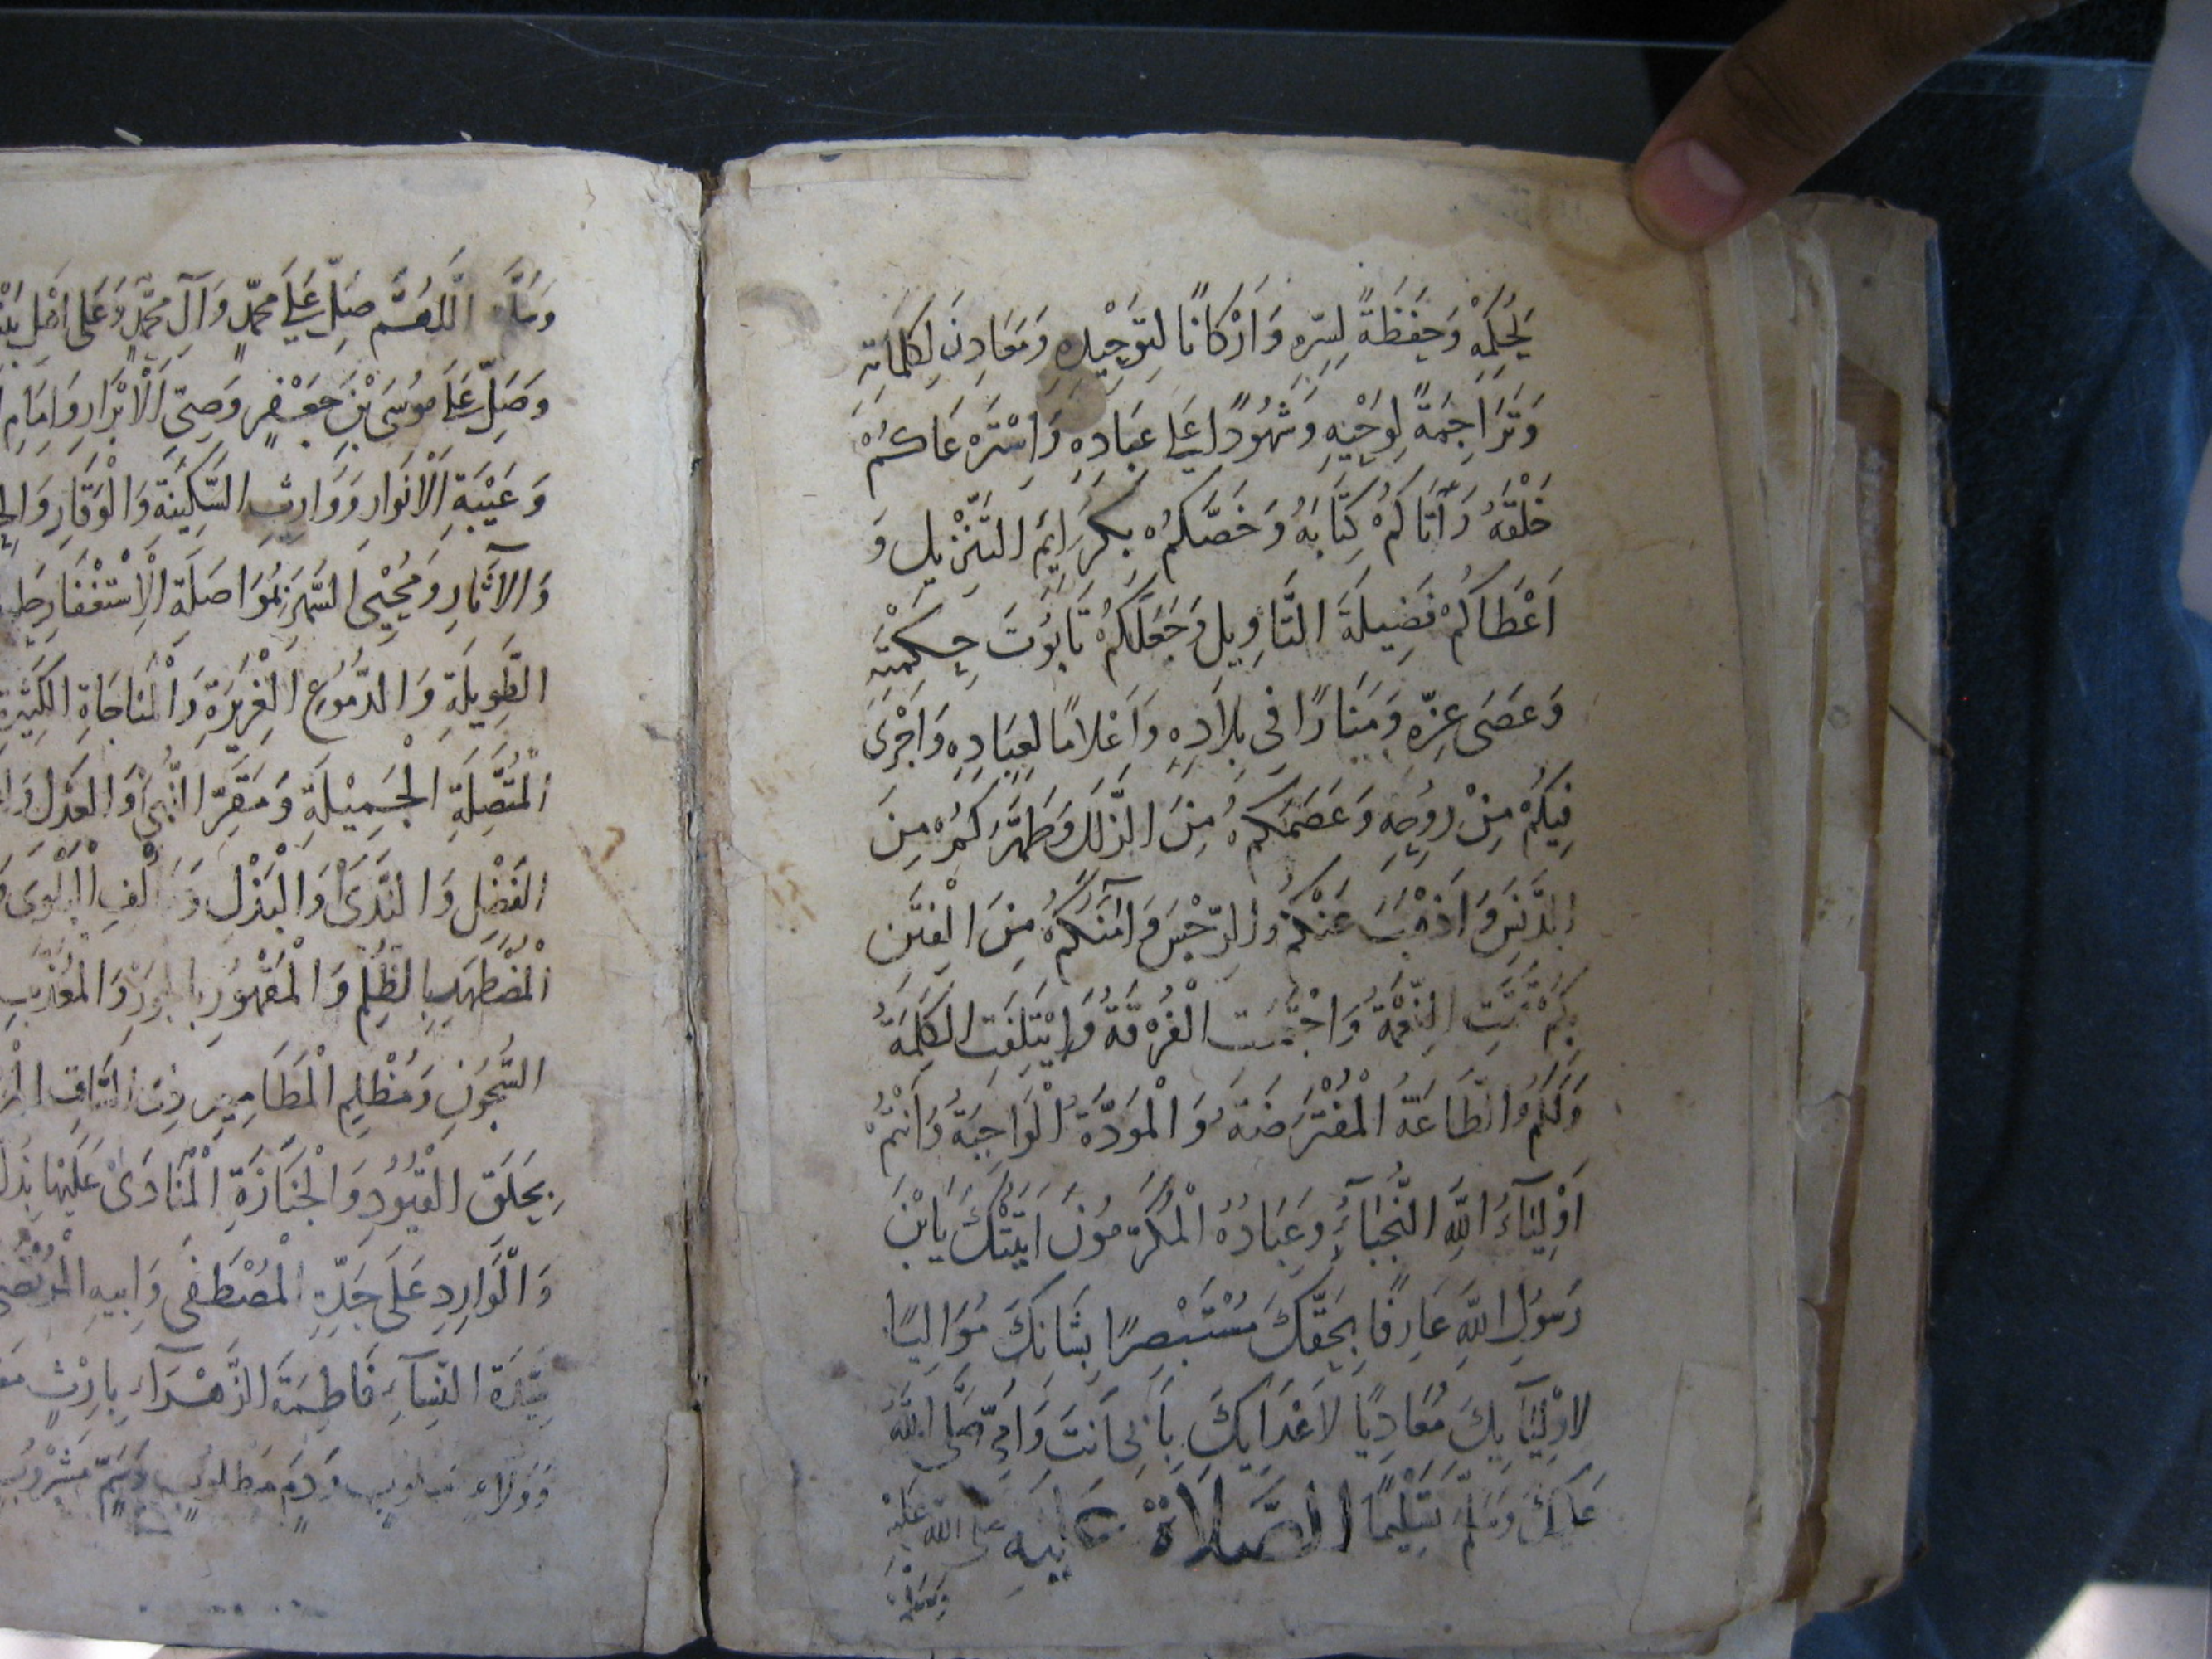 لِحِكَمِهِ وَحَفَظَةً لِسِرِّهِ وَأَرْكَانًا لِتَوْحِيْدِهِ وَمَعَادِنَ لِكَلِمَاتِهِ
وَتَرَاجِمَةً لِوَحْيِهِ وَشُهُودًا عَلَى عِبَادِهِ وَاسْتَرْعَاكُمْ
خَلْقَهُ وَآتَاكُمْ كِتَابَهُ وَخَصَّكُمْ بِكَرَايِمَ التَّنْزِيلِ وَ
اَعْطَاكُمْ فَضِيلَةَ التَّاوِيلِ وَجَعَلَكُمْ تَابُوتَ حِكْمَتِهِ
وَعَصَى عِزِّهِ وَمَنَارًا فِي بِلَادِهِ وَاَعْلَامًا لِعِبَادِهِ وَاَجْرَى
فِيكُمْ مِنْ رُوحِهِ وَعَصَمَكُمْ مِنَ الزَّلَلِ وَطَهَّرَكُمْ مِنَ
الدَّنَسِ وَاَذْهَبَ عَنْكُمُ الرِّجْسَ وَآمَنَكُمْ مِنَ الْفِتَنِ
بِكُمْ تَمَّتِ النِّعْمَةُ وَاجْتَمَعَتِ الْفُرْقَةُ وَايْتَلَفَتِ الْكَلِمَةُ
وَلَكُمُ الطَّاعَةُ الْمُفْتَرَضَةُ وَالْمَوَدَّةُ الْوَاجِبَةُ وَاَنْتُمْ
اَوْلِيَاءُ اللَّهِ النُّجَبَاءُ وَعِبَادُهُ الْمُكَرَّمُونَ اَتَيْتُكَ يَابْنَ
رَسُولِ اللَّهِ عَارِفًا بِحَقِّكَ مُسْتَبْصِرًا بِشَانِكَ مُوَالِيًا
لِاَوْلِيَآيِكَ مُعَادِيًا لِاَعْدَايِكَ بِاَبِي اَنْتَ وَاُمِّي صَلَّى اللَّهُ
عَلَيْكَ وَسَلَّمَ تَسْلِيْمًا الصَّلَاةُ عَلَيْهِ صَلَّى اللَّهُ عَلَيْهِ
وَسَلَّمَ
وَسَلَّمَ اَللَّهُمَّ صَلِّ عَلَى مُحَمَّدٍ وَآلِ مُحَمَّدٍ وَعَلَى اَهْلِ
وَصَلِّ عَلَى مُوسَى بْنِ جَعْفَرٍ وَصِيِّ الْاَبْرَارِ وَاِمَامِ
وَعَيْبَةِ الْاَنْوَارِ وَوَارِثِ السَّكِينَةِ وَالْوَقَارِ
وَالْآثَارِ وَمُحْيِي السَّهَرِ بِمُوَاصَلَةِ الْاِسْتِغْفَارِ
الطَّوِيلَةِ وَالدُّمُوعِ الْغَزِيرَةِ وَالْمُنَاجَاةِ الْكَثِيرَةِ
الْمُتَّصِلَةِ الْجَمِيْلَةِ وَمَقَرِّ النُّهَى وَالْعَدْلِ
الْفَضْلِ وَالنَّدَى وَالْبَذْلِ وَمَأْلَفِ الْبَلْوَى
الْمُضْطَهَدِ بِالظُّلْمِ وَالْمَقْهُورِ بِالْجَوْرِ وَالْمُعَذَّبِ
السُّجُونِ وَمُظْلِمِ الْمَطَامِيرِ ذِي السَّاقِ
بِحِلَقِ الْقُيُودِ وَالْجَنَازَةِ الْمُنَادَى عَلَيْهَا بِذُلِّ
وَالْوَارِدِ عَلَى جَدِّهِ الْمُصْطَفَى وَاَبِيهِ الْمُرْتَضَى
سَيِّدَةِ النِّسَآءِ فَاطِمَةَ الزَّهْرَآءِ بِاِرْثٍ
وَوَلَاءٍ وَدَمٍ مَطْلُوبٍ وَسَمٍّ مَشْرُوبٍ